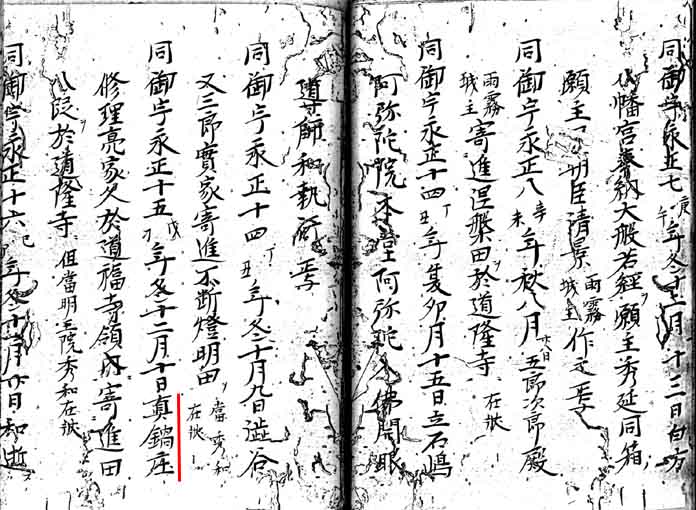 同御宇永正七庚午年冬十二月十三日白方
八幡宮奉納大般若経ヲ願主秀延同箱
願主明臣清景雨霧城主作之焉
同御宇永正八辛未年秋八月五郎次郎殿
雨霧城主寄進涅槃田於道隆寺在状
同御宇永正十四丁丑年夏卯月十五日立石嶋
阿弥陀院本堂阿弥陀佛開眼
導師和執行焉
同御宇永正十四丁丑年冬十二月九日澁谷
又三郎實家寄進不断燈明田ヲ當秀和在状
同御宇永正十五戊刁年冬十二月十日真鍋庄
修理亮家久於道福寺領内寄進田
八段ヲ於道隆寺但當明王院秀和在状
同御宇永正十六己年冬十月廿日和逝